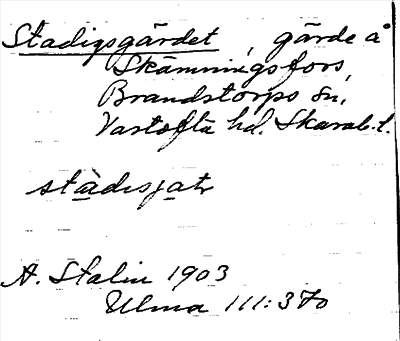 Stadigsgärdet, gärde å
Skämningsfors,
Brandstorps sn,
Vartofta hd. Skarab. l.
A. Stalin 1903
Ulma 111:370